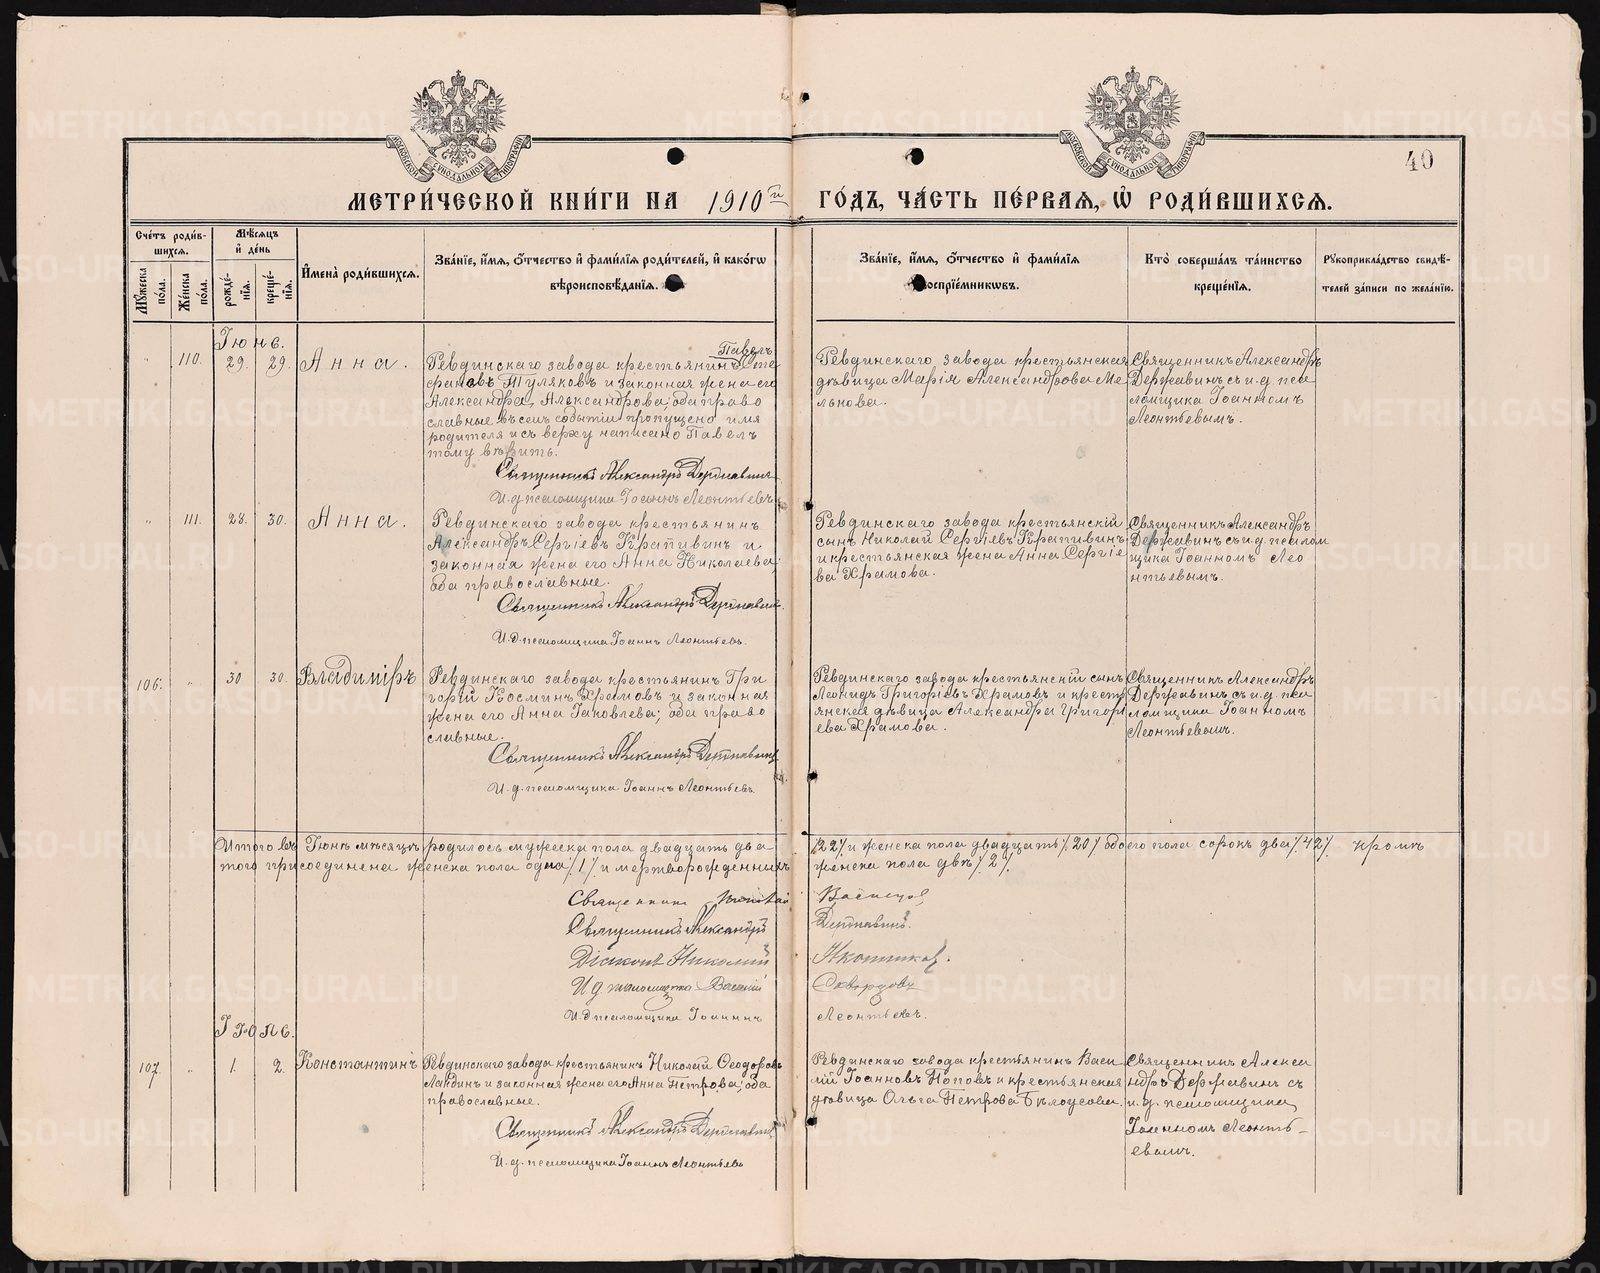 МОСКОВСКОЙ СѴНОДАЛЬНОЙ ТИПОГРАФІИ
МОСКОВСКОЙ СѴНОДАЛЬНОЙ ТИПОГРАФІИ
40
МЕТРИ́ЧЕСКОЙ КНИ́ГИ НА 1910й ГО́ДЪ, ЧА́СТЬ ПЕ́РВАЯ, Ѡ҆ РОДИ́ВШИХСЯ.
Сче́тъ роди́в-
шихся.
Мѣ́сяцъ
и҆ де́нь
Мꙋ́жеска по́ла.
Же́нска по́ла.
рожде́-
нїя.
креще́-
нїя.
И҆мена̀ роди́вшихся.
Зва́нїе, и҆́мя, ѻ҆́тчество и҆ фами́лїя роди́телей, и҆ како́гѡ
вѣроисповѣ́данїя.
Зва́нїе, и҆́мя, ѻ҆́тчество и҆ фами́лїя
воспрїе́мникѡвъ.
Кто̀ соверша́лъ та́инство
креще́нїя.
Рꙋкоприкла́дство свидѣ́-
телей за́писи по жела́нїю.
Іюнь.
" 110. 29. 29. Анна.
Павелъ
Ревдинскаго завода крестьянинъ Сте
фановъ Туляковъ и законная жена его
Александра Александрова; оба право
славные въ семъ событіи пропущено имя
родителя и съ верху написано Павелъ
тому вѣрить.
Священникъ Александръ Державинъ
И. д. псаломщика Іоаннъ Леонтьевъ
Ревдинскаго завода крестьянская
дѣвица Марія Александрова Ме
лькова.
Священникъ Александръ
Державинъ съ и. д. пса
ломщика Іоанномъ
Леонтьевымъ.
" 111. 28. 30. Анна.
Ревдинскаго завода крестьянинъ
Александръ Сергіевъ Крапивинъ и
законная жена его Анна Николаева;
оба православные.
Священникъ Александръ Державинъ.
И. д. псаломщика Іоаннъ Леонтьевъ.
Ревдинскаго завода крестьянскій
сынъ Николай Сергіевъ Крапивинъ
и крестьянская жена Анна Сергіе
ва Храмова.
Священникъ Александръ
Державинъ съ и. д. псалом
щика Іоанномъ Лео
нтьевымъ.
106. " 30 30. Владиміръ
Ревдинскаго завода крестьянинъ Гри
горій Космин Храмовъ и законная
жена его Анна Іаковлева; оба право
славные.
Священникъ Александръ Державинъ
И. д. псаломщика Іоаннъ Леонтьевъ
Ревдинскаго завода крестьянскій сынъ
Леонидъ Григоріевъ Храмовъ и кресть
янская дѣвица Александра Григорі
ева Храмова.
Священникъ Александръ
Державинъ съ и. д. пса
ломщика Іоанномъ
Леонтьевымъ.
Итого въ Іюнѣ мѣсяцѣ родилось мужеска пола двадцать два /22/ и женска пола двадцать /20/ обоего пола сорокъ два /42/. кромѣ
того присоединена женска пола одна /1/ и мертворожденныхъ женска пола двѣ /2/.
Священникъ
Священникъ Александръ Державинъ.
Діаконъ Николай
И д псаломщика Василій Скворцовъ
И. д псаломщика Іоаннъ Леонтьевъ.
Іюль.
107. " 1. 2. Константинъ
Ревдинскаго завода крестьянинъ Николай Ѳеодоровъ
и законная жена его Анна Петрова; оба
православные.
Священникъ Александръ Державинъ
И. д. псаломщика Іоаннъ Леонтьевъ
Ревдинскаго завода крестьянинъ Васи
лій Іоанновъ Поповъ и крестьянская
дѣвица Ольга Петрова Бѣлоусова.
Священникъ Алекса
ндръ Державинъ съ
и. д. псаломщика
Іоанномъ Леонть-
евымъ.